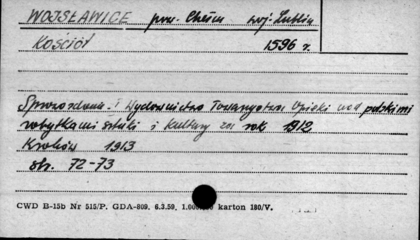 WOJSŁAWICE pow. Chełm woj. Lublin
Kościół 1596 r.
Sprawozdanie i Wydawnictwo Towarzystwa Opieki nad polskimi
zabytkami sztuki i kultury za rok 1912
Kraków 1913
str. 72-73
CWD B-15b Nr 515/P. GDA-869. 6.3.59. karton 180/V.